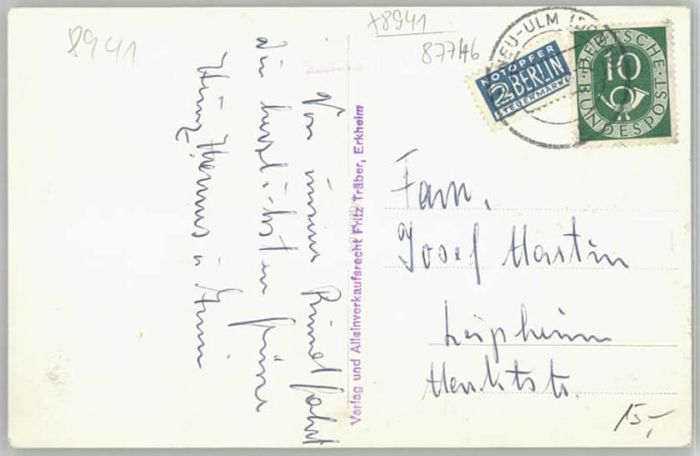 8941
+8941
87746
NEU-ULM
NOTOPFER
2 BERLIN
STEUERMARKE
DEUTSCHE
10
BUNDESPOST
Von unserer Rundfahrt
die herzlichsten Grüße
Verlag und Alleinverkaufsrecht Fritz Träber, Erkheim
Fam.
Josef Mastin
Leipheim
Marktstr.
15,-